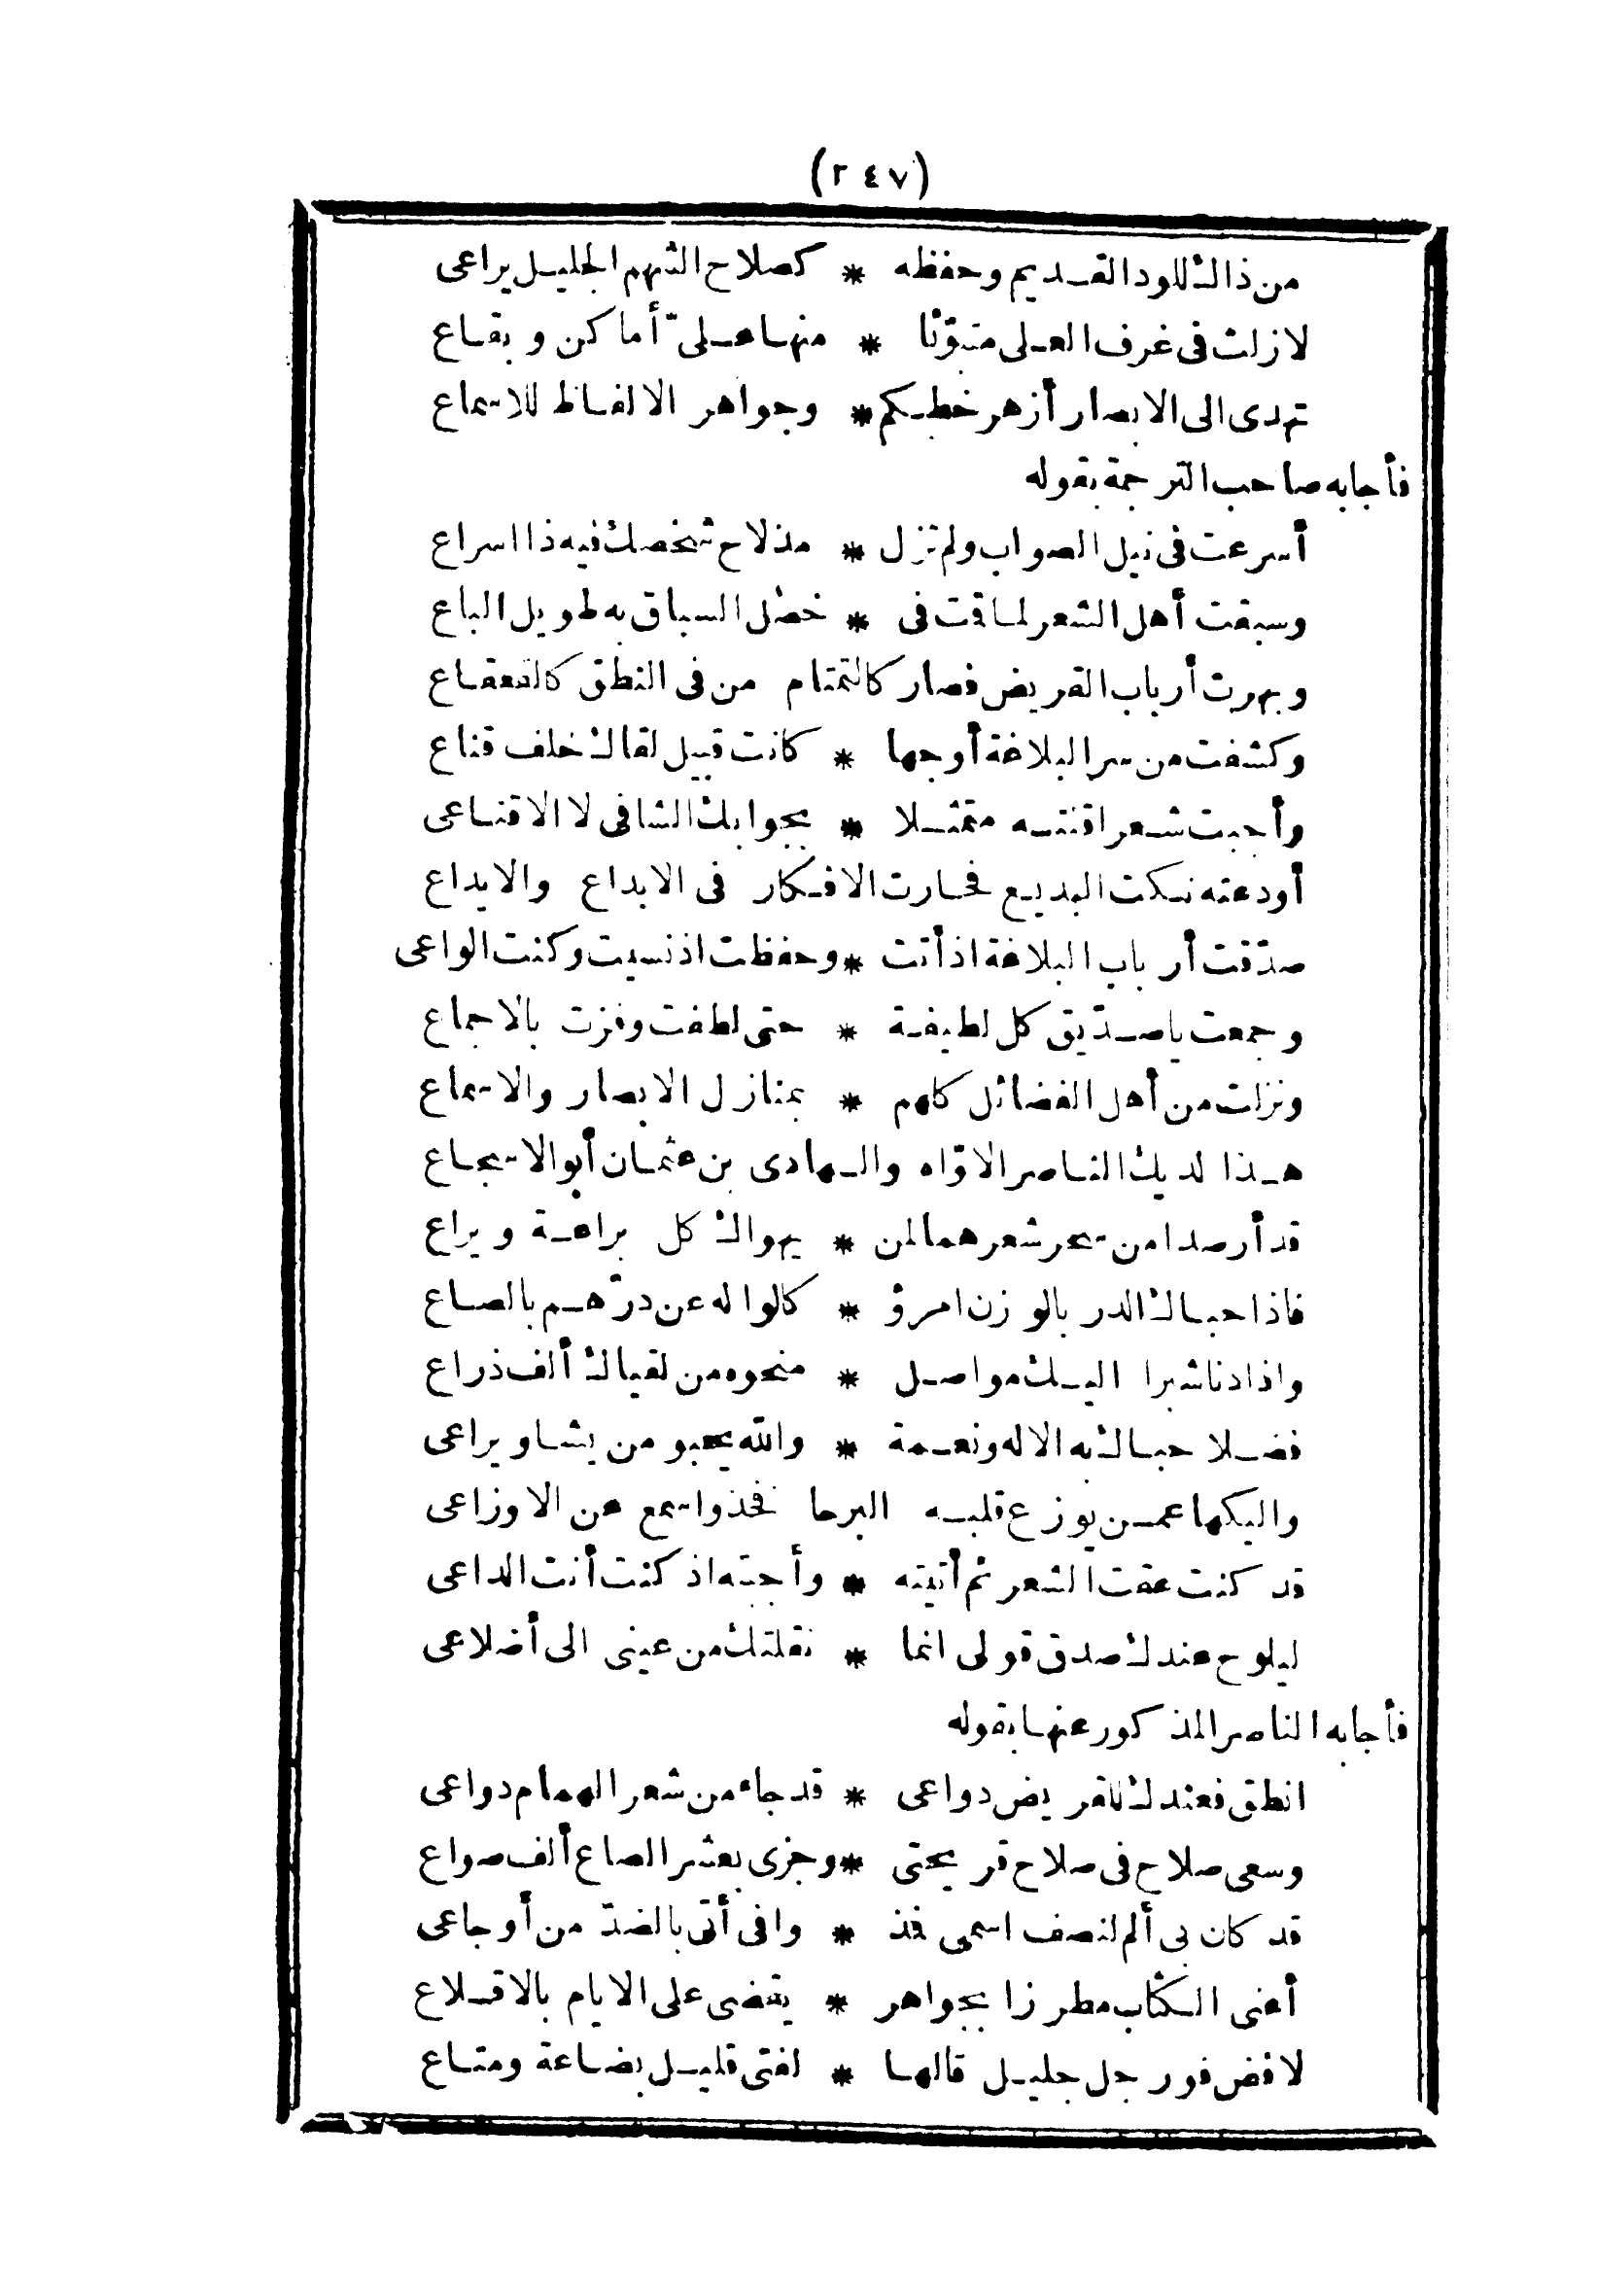 (٢٤٧)
من ذا لك للود القديم وحفظه * كصلاح الشهم الجليل يراعى
لازلت فى غرف العلى متبوّئا * منها على أماكن وبقاع
تهدى الى الابصار أزهر خطكم * وجواهر الالفاظ للاسماع
فأجابه صاحب الترجمة بقوله
أسرعت فى نيل الصواب ولم تزل * مذلاح شخصك فيه ذا اسراع
وسبقت أهل الشعر لما قت فى * خصل السباق به طويل الباع
وبهرت أرباب القريض فصار كالتمتام من فى النطق كالقعقاع
وكشفت من سر البلاغة أوجها * كانت قبيل لقاك خلف قناع
وأجبت شعرا قلته متمثلا * بجوابك الشافى لا الاقناعى
أودعته نكت البديع فحارت الافكار فى الابداع والايداع
صدّقت أرباب البلاغة اذ أتت * وحفظت اذ نسيت وكنت الواعى
وجمعت ياصدّيق كل لطيفة * حتى لطفت وفزت بالاجماع
ونزلت من أهل الفضائل كلهم * بمنازل الابصار والاسماع
هذا لديك الناصر الاوّاه والهادى بن عثمان أبو الاسجاع
قد أرصدا من سحر شعرهما لمن * يهواك كل براعة ويراع
فاذا حباك الدر بالوزن امرؤ * كالوا له عن درّهم بالصاع
واذا دنا شبرا اليك مواصل * منحوه من لقياك ألف ذراع
فضلا حباك به الاله ونعمة * والله يحبو من يشا ويراعى
واليكها عمن يوزع قلبه البرحا فخذ واسمع عن الاوزاعى
قد كنت عفت الشعر ثم أتيته * وأجبته اذ كنت أنت الداعى
ليلوح عندك صدق قولى انما * نقلتك من عينى الى أضلاعى
فأجابه الناصر المذكور عنها بقوله
انطق فعندك للقريض دواعى * قد جاء من شعر الهمام دواعى
وسعى صلاح فى صلاح قريحتى * وجزى بعشر الصاع ألف صواع
قد كان بى ألم لنصف اسمى فذ * وافى أتى بالضدّ من أوجاعى
أعنى الكتاب مطرزا بجواهر * يقضى على الايام بالاقلاع
لافض فو رجل جليل قالها * لفتى قليل بضاعة ومتاع